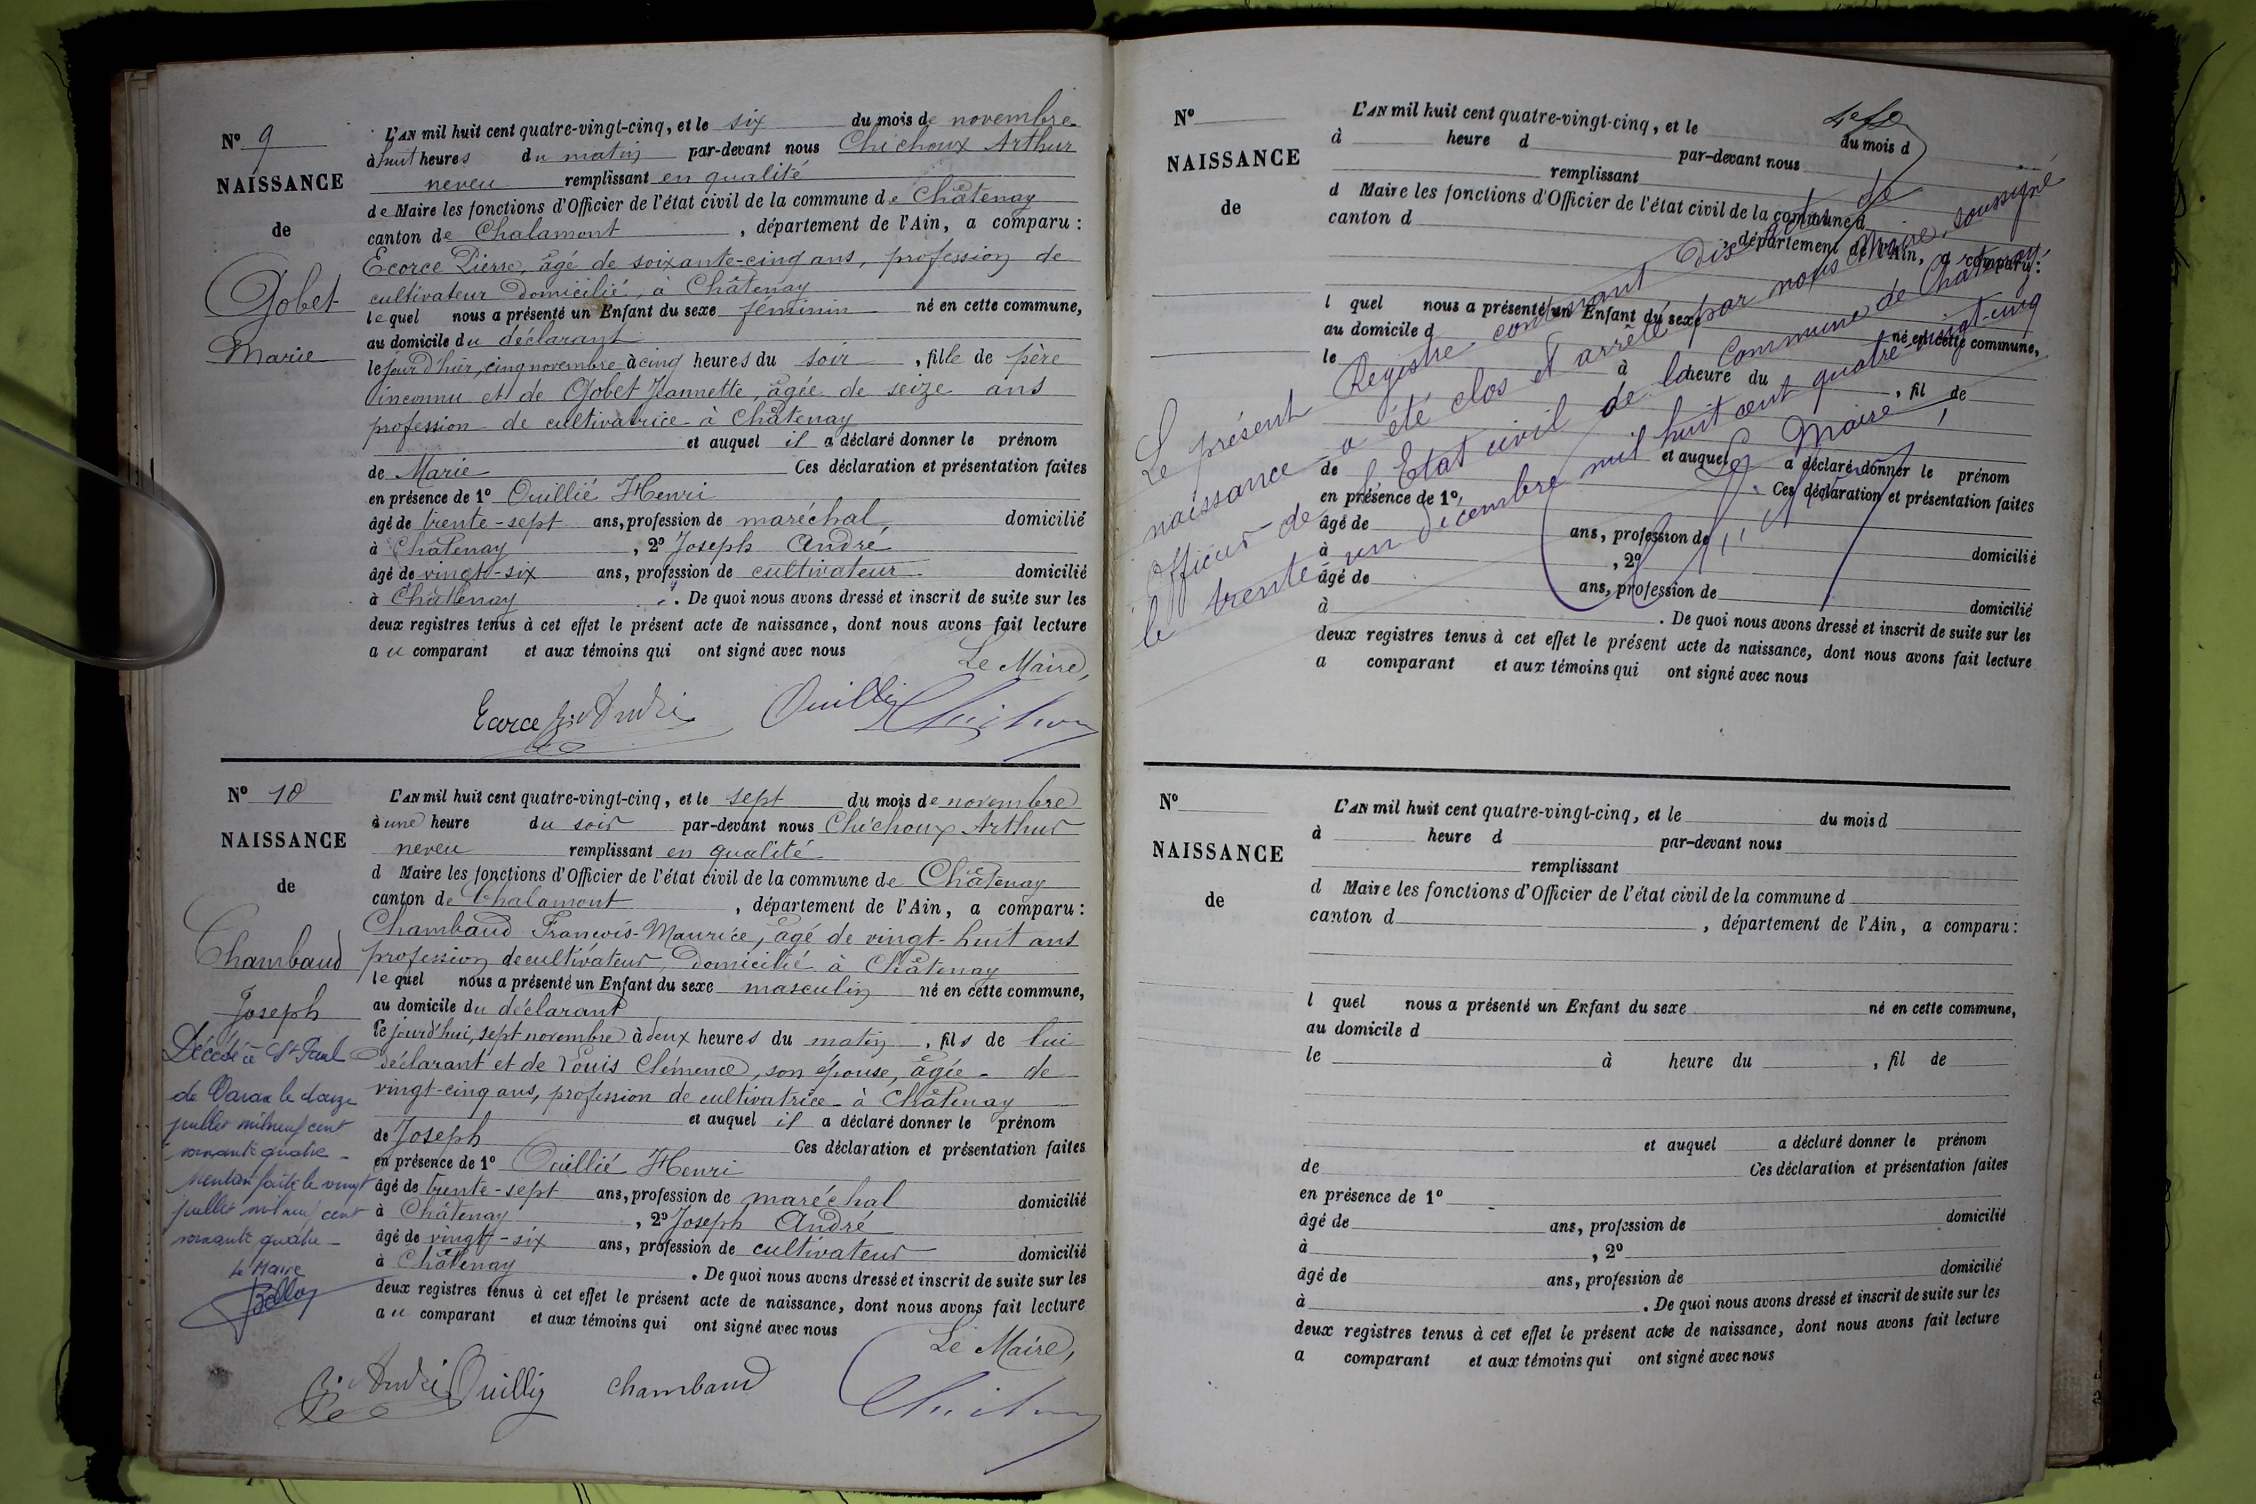 N° 9
NAISSANCE
de
Gobet
Marie
L'AN mil huit cent quatre-vingt-cinq, et le six du mois de novembre
à huit heures du matin par-devant nous Chichoux Arthur
neveu remplissant en qualité
de Maire les fonctions d'Officier de l'état civil de la commune de Châtenay
canton de Chalamont, département de l'Ain, a comparu :
Ecorce Pierre, âgé de soixante-cinq ans, profession de
cultivateur domicilié à Châtenay
lequel nous a présenté un Enfant du sexe féminin né en cette commune,
au domicile du déclarant
le jour d'hier, cinq novembre à cinq heures du soir, fille de père
inconnu et de Gobet Jeannette, âgée de seize ans
profession de cultivatrice à Châtenay
et auquel il a déclaré donner le prénom
de Marie Ces déclaration et présentation faites
en présence de 1° Ouillié Henri
âgé de trente-sept ans, profession de maréchal domicilié
à Châtenay, 2° Joseph André
âgé de vingt-six ans, profession de cultivateur domicilié
à Châtenay. De quoi nous avons dressé et inscrit de suite sur les
deux registres tenus à cet effet le présent acte de naissance, dont nous avons fait lecture
au comparant et aux témoins qui ont signé avec nous
Le Maire,
Ecorce André Ouillié
N° 10
NAISSANCE
de
Chambaud
Joseph
Décédé à St Paul
de Varax le douze
juillet mil neuf cent
soixante quatre -
Mention faite le vingt
juillet mil neuf cent
soixante quatre -
Le Maire
L'AN mil huit cent quatre-vingt-cinq, et le sept du mois de novembre
à une heure du soir par-devant nous Chichoux Arthur
neveu remplissant en qualité
d Maire les fonctions d'Officier de l'état civil de la commune de Châtenay
canton de Chalamont, département de l'Ain, a comparu :
Chambaud François-Maurice, âgé de vingt-huit ans
profession de cultivateur, domicilié à Châtenay
lequel nous a présenté un Enfant du sexe masculin né en cette commune,
au domicile du déclarant
le jourd'hui, sept novembre à deux heures du matin, fils de lui
déclarant et de Louis Clémence, son épouse, âgée de
vingt-cinq ans, profession de cultivatrice à Châtenay
et auquel il a déclaré donner le prénom
de Joseph Ces déclaration et présentation faites
en présence de 1° Ouillié Henri
âgé de trente-sept ans, profession de maréchal domicilié
à Châtenay, 2° Joseph André
âgé de vingt-six ans, profession de cultivateur domicilié
à Châtenay. De quoi nous avons dressé et inscrit de suite sur les
deux registres tenus à cet effet le présent acte de naissance, dont nous avons fait lecture
au comparant et aux témoins qui ont signé avec nous
Le Maire,
André Ouillié Chambaud
N°
NAISSANCE
de
L'AN mil huit cent quatre-vingt-cinq, et le du mois d
à heure d par-devant nous
remplissant
d Maire les fonctions d'Officier de l'état civil de la commune d
canton d , département de l'Ain, a comparu :
l quel nous a présenté un Enfant du sexe né en cette commune,
au domicile d
le à heure du , fil de
et auquel a déclaré donner le prénom
de Ces déclaration et présentation faites
en présence de 1°
âgé de ans, profession de domicilié
à , 2°
âgé de ans, profession de domicilié
à . De quoi nous avons dressé et inscrit de suite sur les
deux registres tenus à cet effet le présent acte de naissance, dont nous avons fait lecture
a comparant et aux témoins qui ont signé avec nous
Le présent Registre contenant dix actes de
naissance a été clos et arrêté par nous Maire, soussigné
officier de l'Etat civil de la Commune de Châtenay
le trente un décembre mil huit cent quatre-vingt-cinq
Le Maire,
N°
NAISSANCE
de
L'AN mil huit cent quatre-vingt-cinq, et le du mois d
à heure d par-devant nous
remplissant
d Maire les fonctions d'Officier de l'état civil de la commune d
canton d , département de l'Ain, a comparu :
l quel nous a présenté un Enfant du sexe né en cette commune,
au domicile d
le à heure du , fil de
et auquel a déclaré donner le prénom
de Ces déclaration et présentation faites
en présence de 1°
âgé de ans, profession de domicilié
à , 2°
âgé de ans, profession de domicilié
à . De quoi nous avons dressé et inscrit de suite sur les
deux registres tenus à cet effet le présent acte de naissance, dont nous avons fait lecture
a comparant et aux témoins qui ont signé avec nous